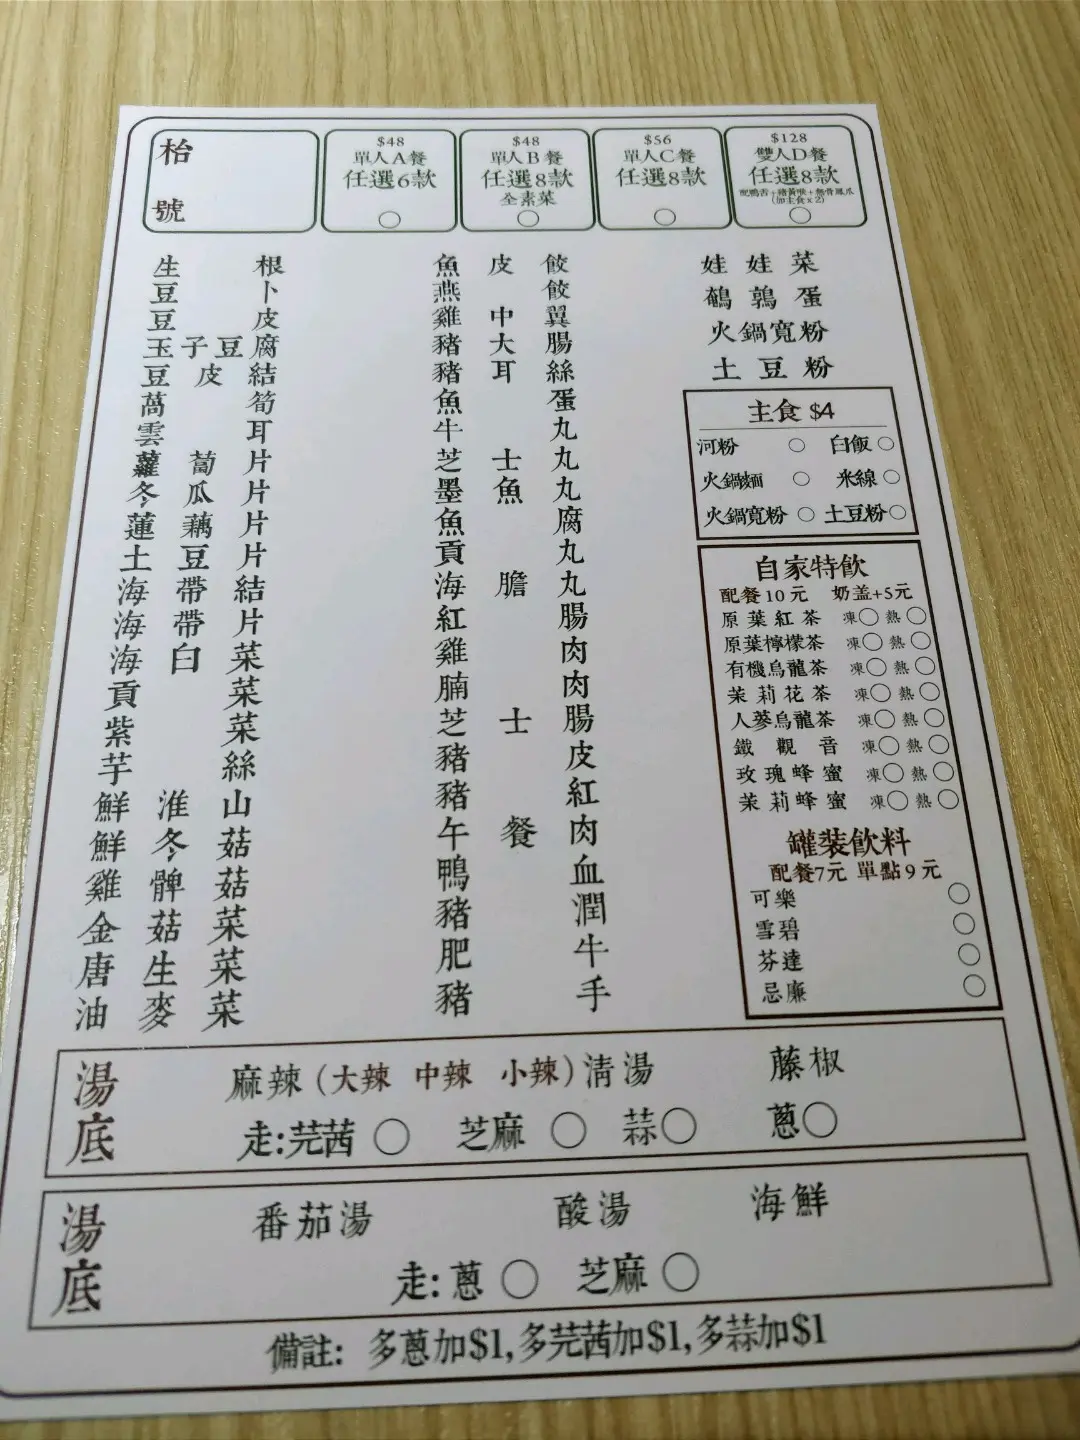 枱號
$48
單人A餐
任選6款
$48
單人B餐
任選8款
全素菜
$56
單人C餐
任選8款
$128
雙人D餐
任選8款
配鴨舌+豬黃喉+無骨鳳爪
(加主食x2)
生根
豆卜
豆皮
玉子豆腐
豆皮結
萵筍
雲耳
蘿蔔片
冬瓜片
蓮藕片
土豆片
海帶結
海帶片
海白菜
貢菜
紫菜
芋絲
鮮淮山
鮮冬菇
雞髀菇
金菇菜
唐生菜
油麥菜
魚皮餃
燕餃
雞中翼
豬大腸
豬耳絲
魚蛋
牛丸
芝士丸
墨魚丸
魚腐
貢丸
海膽丸
紅腸
雞肉
腩肉
芝士腸
豬皮
豬紅
午餐肉
鴨血
豬潤
肥牛
豬手
娃娃菜
鵪鶉蛋
火鍋寬粉
土豆粉
主食 $4
河粉 白飯
火鍋麵 米線
火鍋寬粉 土豆粉
自家特飲
配餐10元 奶盖+5元
原葉紅茶 凍 熱
原葉檸檬茶 凍 熱
有機烏龍茶 凍 熱
茉莉花茶 凍 熱
人蔘烏龍茶 凍 熱
鐵觀音 凍 熱
玫瑰蜂蜜 凍 熱
茉莉蜂蜜 凍 熱
罐裝飲料
配餐7元 單點9元
可樂
雪碧
芬達
忌廉
湯底
麻辣(大辣 中辣 小辣)清湯 藤椒
走:芫茜 芝麻 蒜 蔥
湯底
番茄湯 酸湯 海鮮
走:蔥 芝麻
備註: 多蔥加$1,多芫茜加$1,多蒜加$1